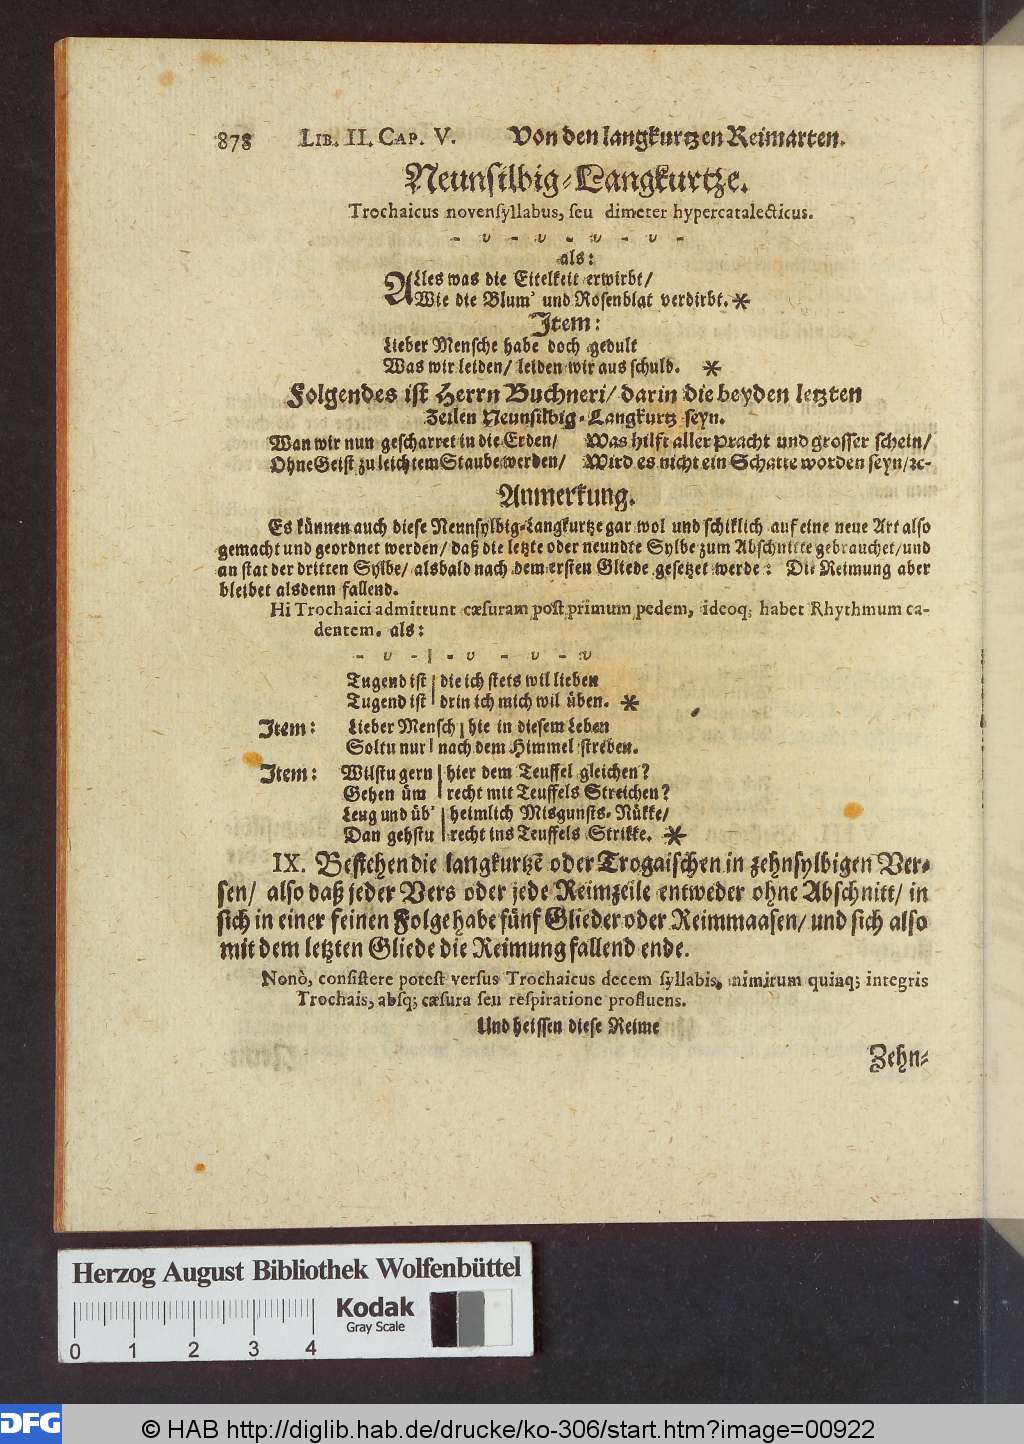 878 Lib. II. Cap. V. Von den langkurtzen Reimarten.
Neunsilbig-Langkurtze.
Trochaicus novensyllabus, seu dimeter hypercatalecticus.
- υ - υ - υ - υ -
als:
Alles was die Eitelkeit erwirbt/
Wie die Blum' und Rosenblat verdirbt. *
Item:
Lieber Mensche habe doch gedult
Was wir leiden/ leiden wir aus schuld. *
Folgendes ist Herrn Buchneri/ darin die beyden letzten
Zeilen Neunsilbig-Langkurtz seyn.
Wan wir nun gescharret in die Erden/ Was hilft aller pracht und grosser schein/
Ohne Geist zu leichtem Staube werden/ Wird es nicht ein Schatte worden seyn/ꝛc-
Anmerkung.
Es künnen auch diese Neunsylbig-Langkurtze gar wol und schiklich auf eine neue Art also
gemacht und geordnet werden/ daß die letzte oder neundte Sylbe zum Abschnitte gebrauchet/und
an stat der dritten Sylbe/ alsbald nach dem ersten Gliede gesetzet werde: Die Reimung aber
bleibet alsdenn fallend.
Hi Trochaici admittunt cæsuram post primum pedem, ideoq; habet Rhythmum ca-
dentem. als:
- υ - | - υ - υ - υ
Tugend ist | die ich stets wil lieben
Tugend ist | drin ich mich wil üben. *
Item: Lieber Mensch | hie in diesem Leben
Soltu nur | nach dem Himmel streben.
Item: Wilstu gern | hier dem Teuffel gleichen?
Gehen üm | recht mit Teuffels Streichen?
Leug und üb' | heimlich Misgunsts-Nükke/
Dan gehstu | recht ins Teuffels Strikke. *
IX. Bestehen die langkurtzē oder Trogaischen in zehnsylbigen Ver-
sen/ also daß jeder Vers oder jede Reimzeile entweder ohne Abschnitt/ in
sich in einer feinen Folge habe fünf Glieder oder Reimmaasen/ und sich also
mit dem letzten Gliede die Reimung fallend ende.
Nonò, consistere potest versus Trochaicus decem syllabis, nimirum quinq; integris
Trochais, absq; cæsura seu respiratione profluens.
Und heissen diese Reime
Zehn-
Herzog August Bibliothek Wolfenbüttel
Kodak
Gray Scale
0 1 2 3 4
DFG
© HAB http://diglib.hab.de/drucke/ko-306/start.htm?image=00922